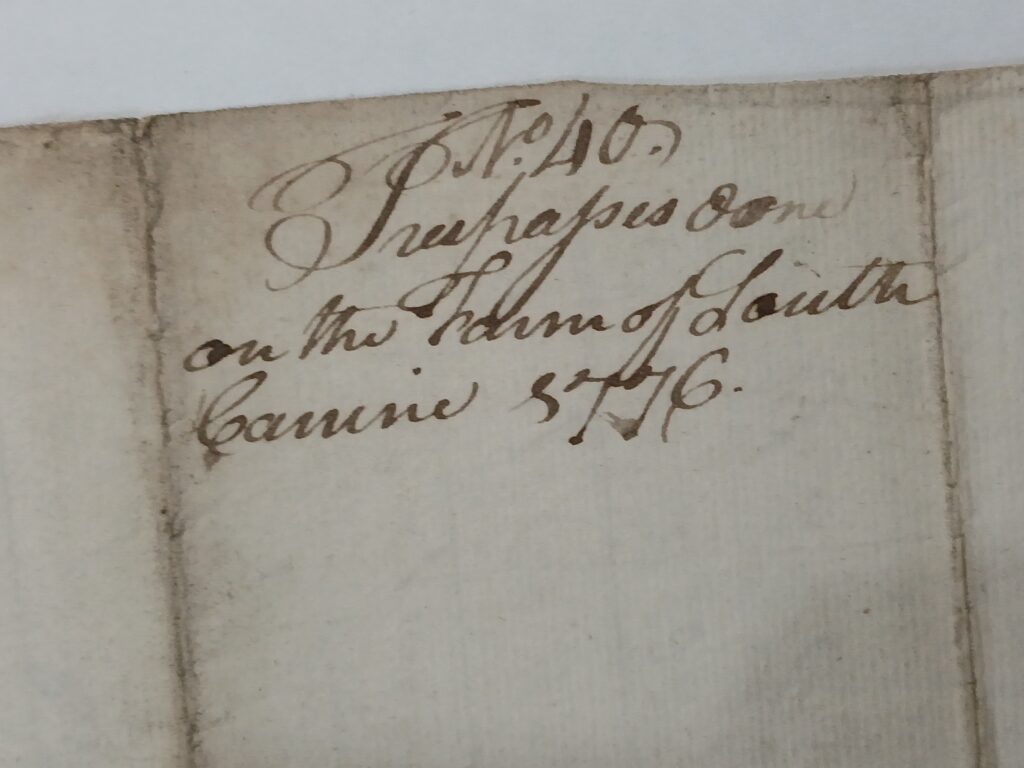 No. 40.
Trespasses done
on the Farm of South
Carrine 1776.